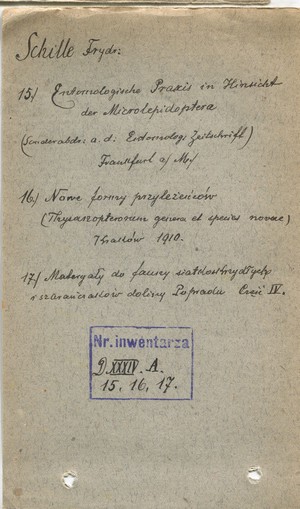 Schille Frydr:
15./ Entomologische Praxis in Hinsicht
der Microlepidoptera
(Sonderabdr: a. d: Entomolog: Zeitschrift)
Frankfurt a/M./
16./ Nowe formy przylżeńców
(Thysanopterorum genera et species novae)
Kraków 1910.
17./ Materyały do fauny siatkoskrzydłych
i szarańczaków doliny Popradu Część IV.
Nr. inwentarza
D XXXIV. A.
15. 16. 17.